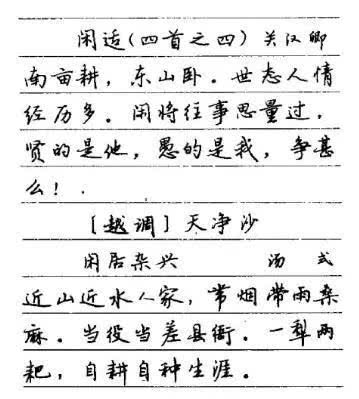 闲适(四首之四) 关汉卿
南亩耕，东山卧。世态人情
经历多。闲将往事思量过，
贤的是他，愚的是我，争甚
么！
[越调]天净沙
闲居杂兴 汤 式
近山近水人家，带烟带雨桑
麻。当役当差县衙。一犁两
耙，自耕自种生涯。